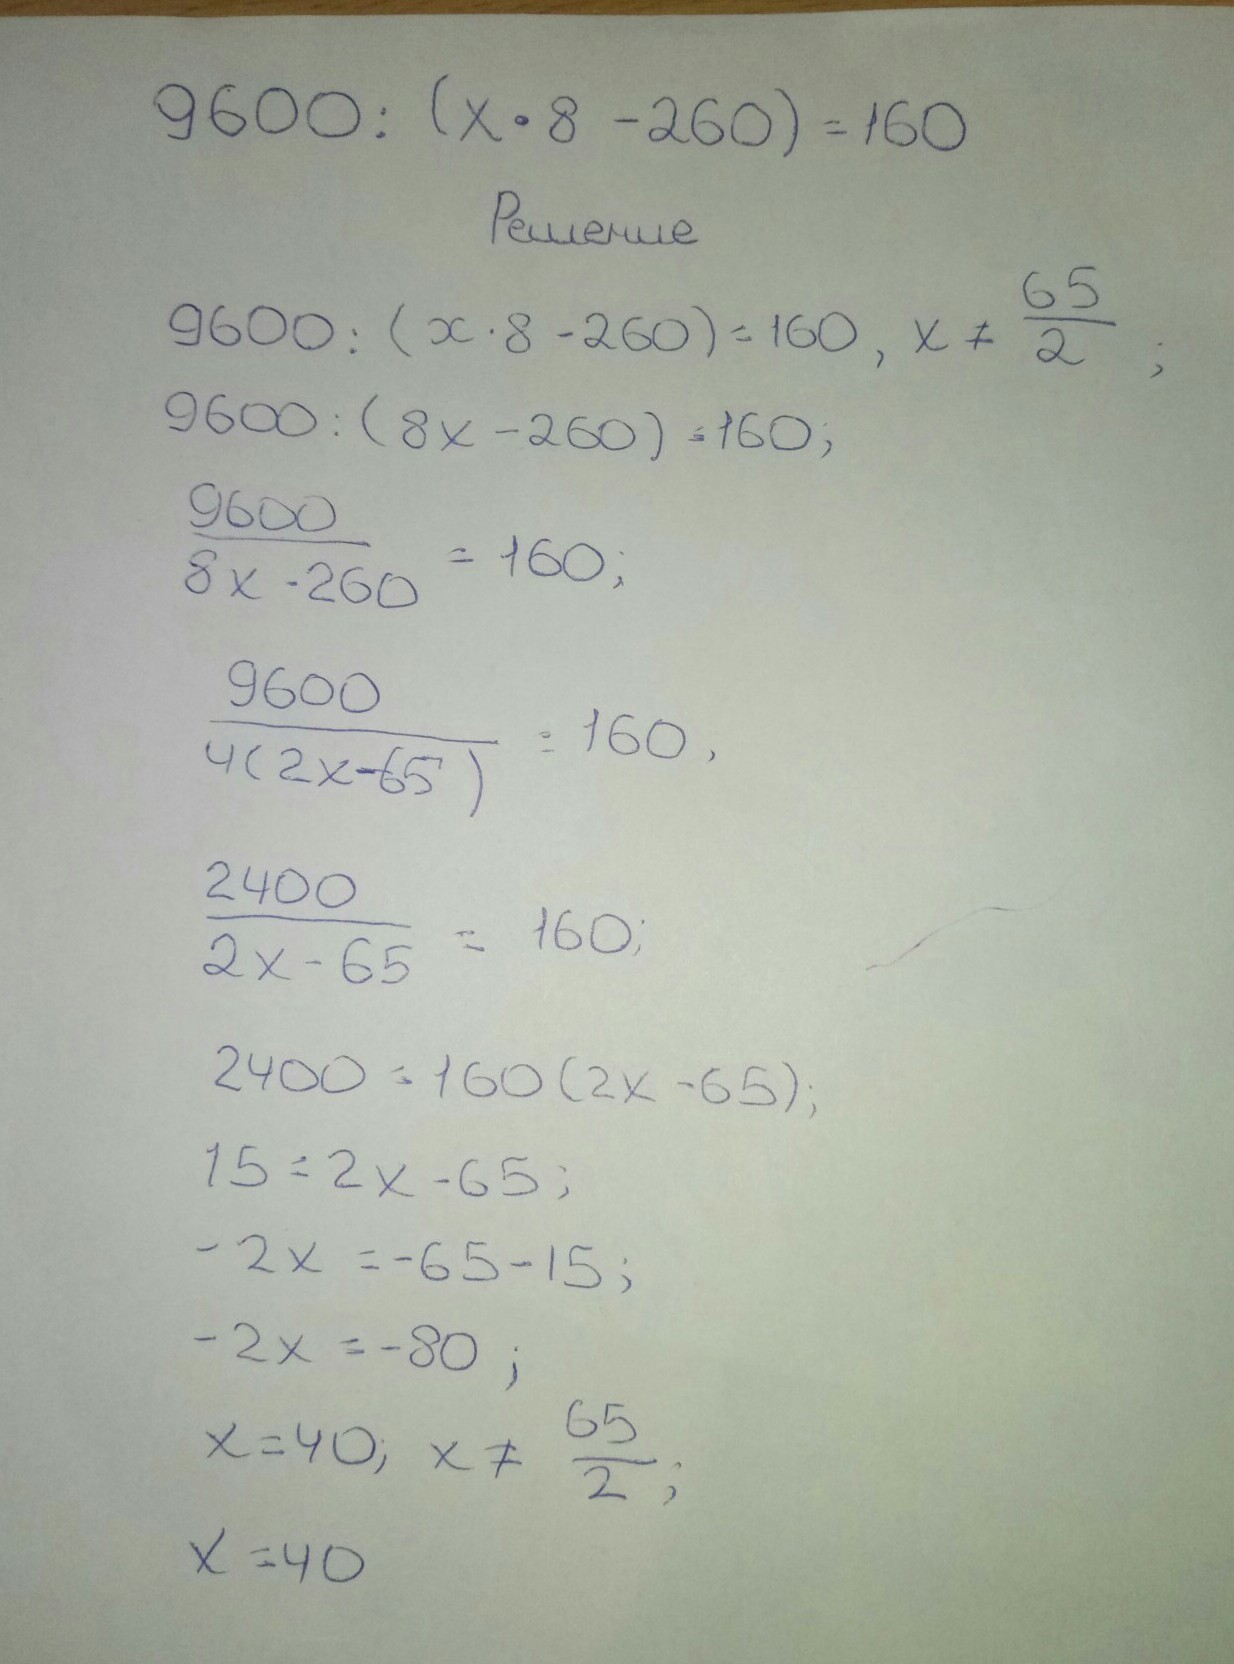 9600: (x·8 -260) = 160
Решение
9600: (x·8 -260) = 160, x ≠ 65/2 ;
9600:(8x -260) = 160;
9600/(8x -260) = 160;
9600/(4(2x-65)) = 160,
2400/(2x-65) = 160;
2400 = 160(2x -65);
15 = 2x -65;
-2x = -65-15;
-2x = -80 ;
x=40; x ≠ 65/2 ;
x=40